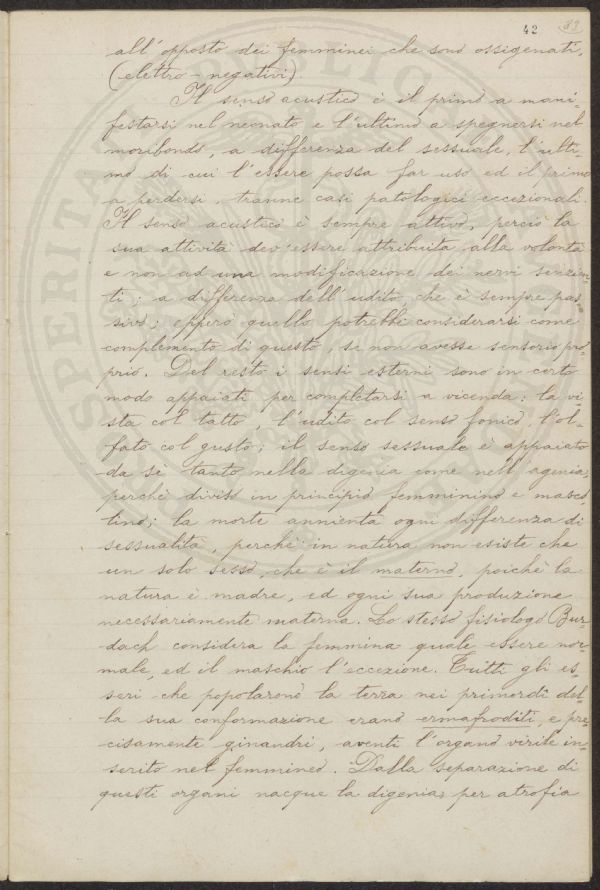 42 83
all'opposto dei femminei che sono ossigenati,
(elettro-negativi).
Il senso acustico è il primo a mani-
festarsi nel neonato e l'ultimo a spegnersi nel
moribondo, a differenza del sessuale, l'ulti-
mo di cui l'essere possa far uso ed il primo
a perdersi, tranne casi patologici eccezionali.
Il senso acustico è sempre attivo, perciò la
sua attività dev'essere attribuita alla volontà
e non ad una modificazione dei nervi senzien-
ti; a differenza dell'udito, che è sempre pas-
sivo; epperò quello potrebbe considerarsi come
complemento di questo, se non avesse sensorio pro-
prio. Del resto i sensi esterni sono in certo
modo appaiati per completarsi a vicenda: la vi-
sta col tatto, l'udito col senso fonico, l'ol-
fato col gusto; il senso sessuale è appaiato
da sè tanto nella digenia come nell'agenia,
perchè diviso in principio femminino e masco-
lino; la morte annienta ogni differenza di
sessualità, perchè in natura non esiste che
un solo sesso, che è il materno, poichè la
natura è madre, ed ogni sua produzione
necessariamente materna. Lo stesso fisiologo Bur-
dach considera la femmina quale essere nor-
male, ed il maschio l'eccezione. Tutti gli es-
seri che popolarono la terra nei primordî del-
la sua conformazione erano ermafroditi, e pre-
cisamente ginandri, aventi l'organo virile in-
serito nel femmineo. Dalla separazione di
questi organi nacque la digenia, per atrofia